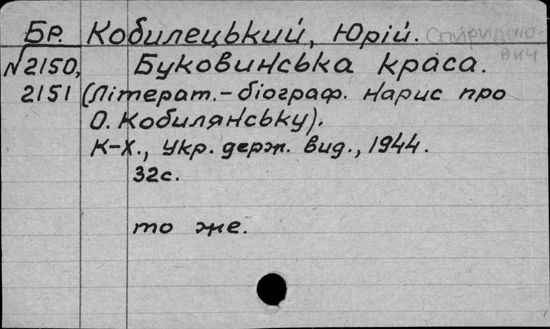 Бр. Кобилецький, Юрій. Спиридоно-
вич
№2150, Буковинська краса.
2151 (Літерат.-біограф. нарис про
О. Кобилянську).
К-Х., Укр. держ. вид., 1944.
32с.
то же.